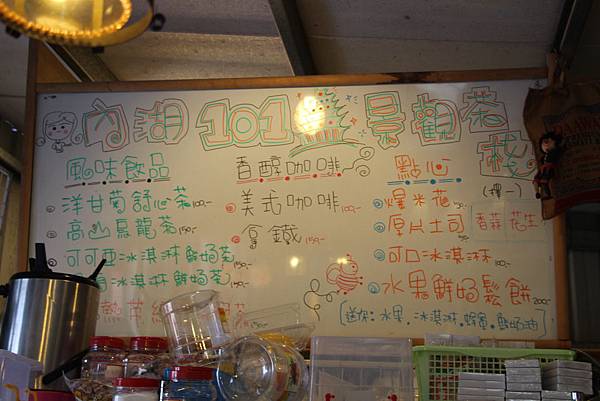 內湖101景觀茶棧
風味飲品
洋甘菊舒心茶100,-
高山烏龍茶150,-
可可亞冰淇淋鮮奶茶
冰淇淋鮮奶茶150,-
茶
香醇咖啡
美式咖啡100,-
拿鐵150,-
點心
(擇一)
爆米花
厚片土司 香蒜 花生
可口冰淇淋
水果鮮奶鬆餅200,-
水果、冰淇淋、蜂蜜、鮮奶油